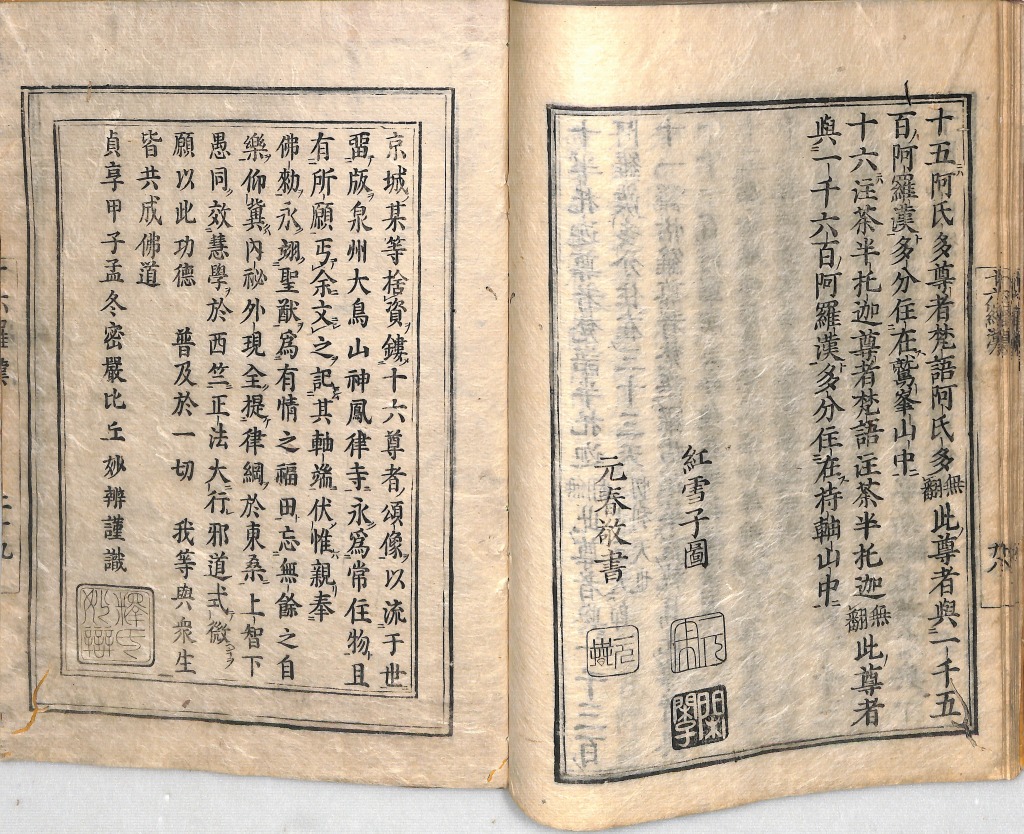 十五阿氏多尊者梵語阿氏多無翻此尊者與二千五
百阿羅漢多分住在鷲峯山中
十六注荼半托迦尊者梵語注荼半托迦無翻此尊者
與一千六百阿羅漢多分住在持軸山中
紅雪子圖
元春敬書
京城某等捨資鏤十六尊者頌像以流于世
畱版泉州大鳥山神鳳律寺永爲常住物且
有所願丐余文之記其軸端伏惟親奉
佛勑永翊聖猷爲有情之福田忘無餘之自
樂仰冀內祕外現全提律綱於東桑上智下
愚同效慧學於西竺正法大行邪道式微
願以此功德 普及於一切 我等與衆生
皆共成佛道
貞享甲子孟冬密嚴比丘妙辨謹識
釋氏
妙辯